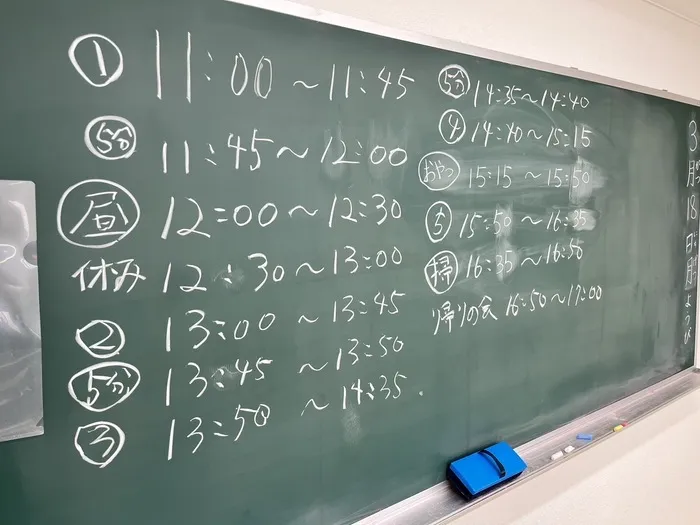 ① 11:00～11:45
5分 11:45～12:00
昼 12:00～12:30
休み 12:30～13:00
② 13:00～13:45
5分 13:45～13:50
③ 13:50～14:35
5分 14:35～14:40
④ 14:40～15:15
おやつ 15:15～15:50
⑤ 15:50～16:35
掃 16:35～16:50
帰りの会 16:50～17:00